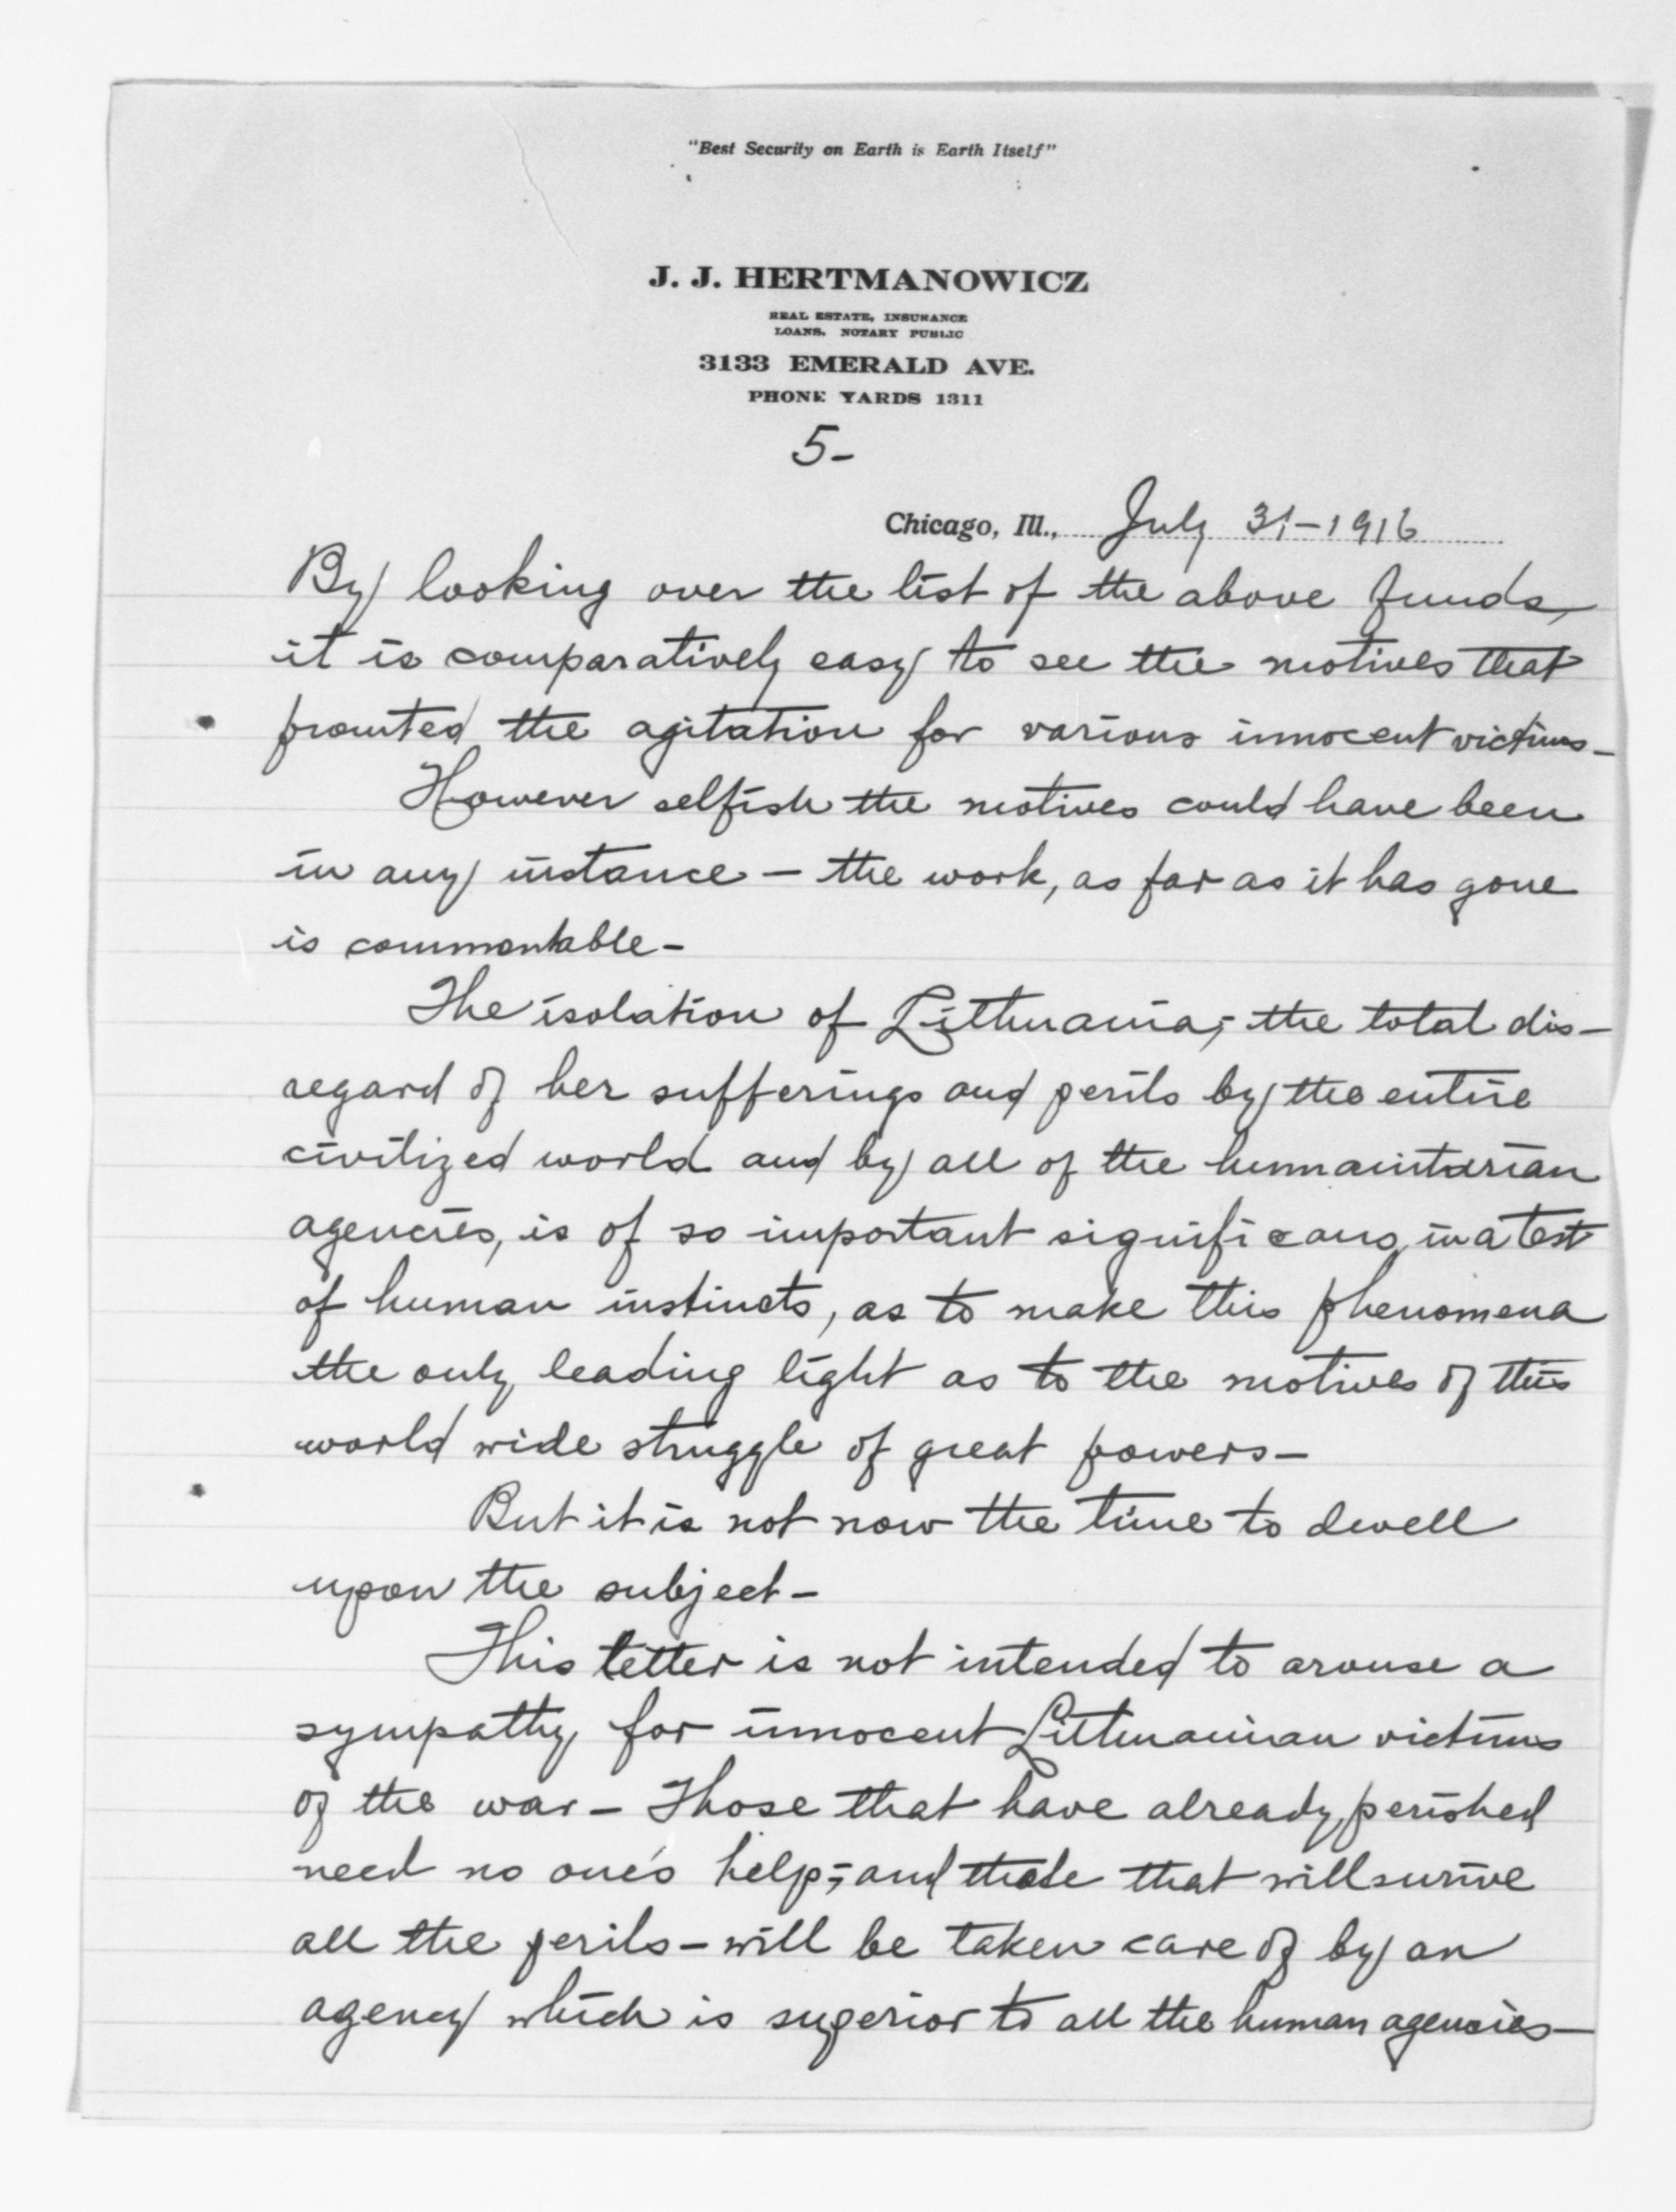 "Best Security on Earth is Earth Itself"
J. J. HERTMANOWICZ
REAL ESTATE, INSURANCE
LOANS, NOTARY PUBLIC
3133 EMERALD AVE.
PHONE YARDS 1311
5-
Chicago, Ill., July 31-1916
By looking over the list of the above funds,
it is comparatively easy to see the motives that
promted the agitation for various innocent victims-
However selfish the motives could have been
in any instance - the work, as far as it has gone
is commentable-
The isolation of Lithuania; the total dis-
regard of her sufferings and perils by the entire
civilized world and by all of the humaintarian
agencies, is of so important significans, in a test
of human instincts, as to make this phenomena
the only leading light as to the motives of this
world wide struggle of great powers-
But it is not now the time to dwell
upon the subject-
This letter is not intended to arouse a
sympathy for innocent Lithuanian victims
of the war- Those that have already perished
need no one's help; and those that will survive
all the perils - will be taken care of by an
agency which is superior to all the human agencies-